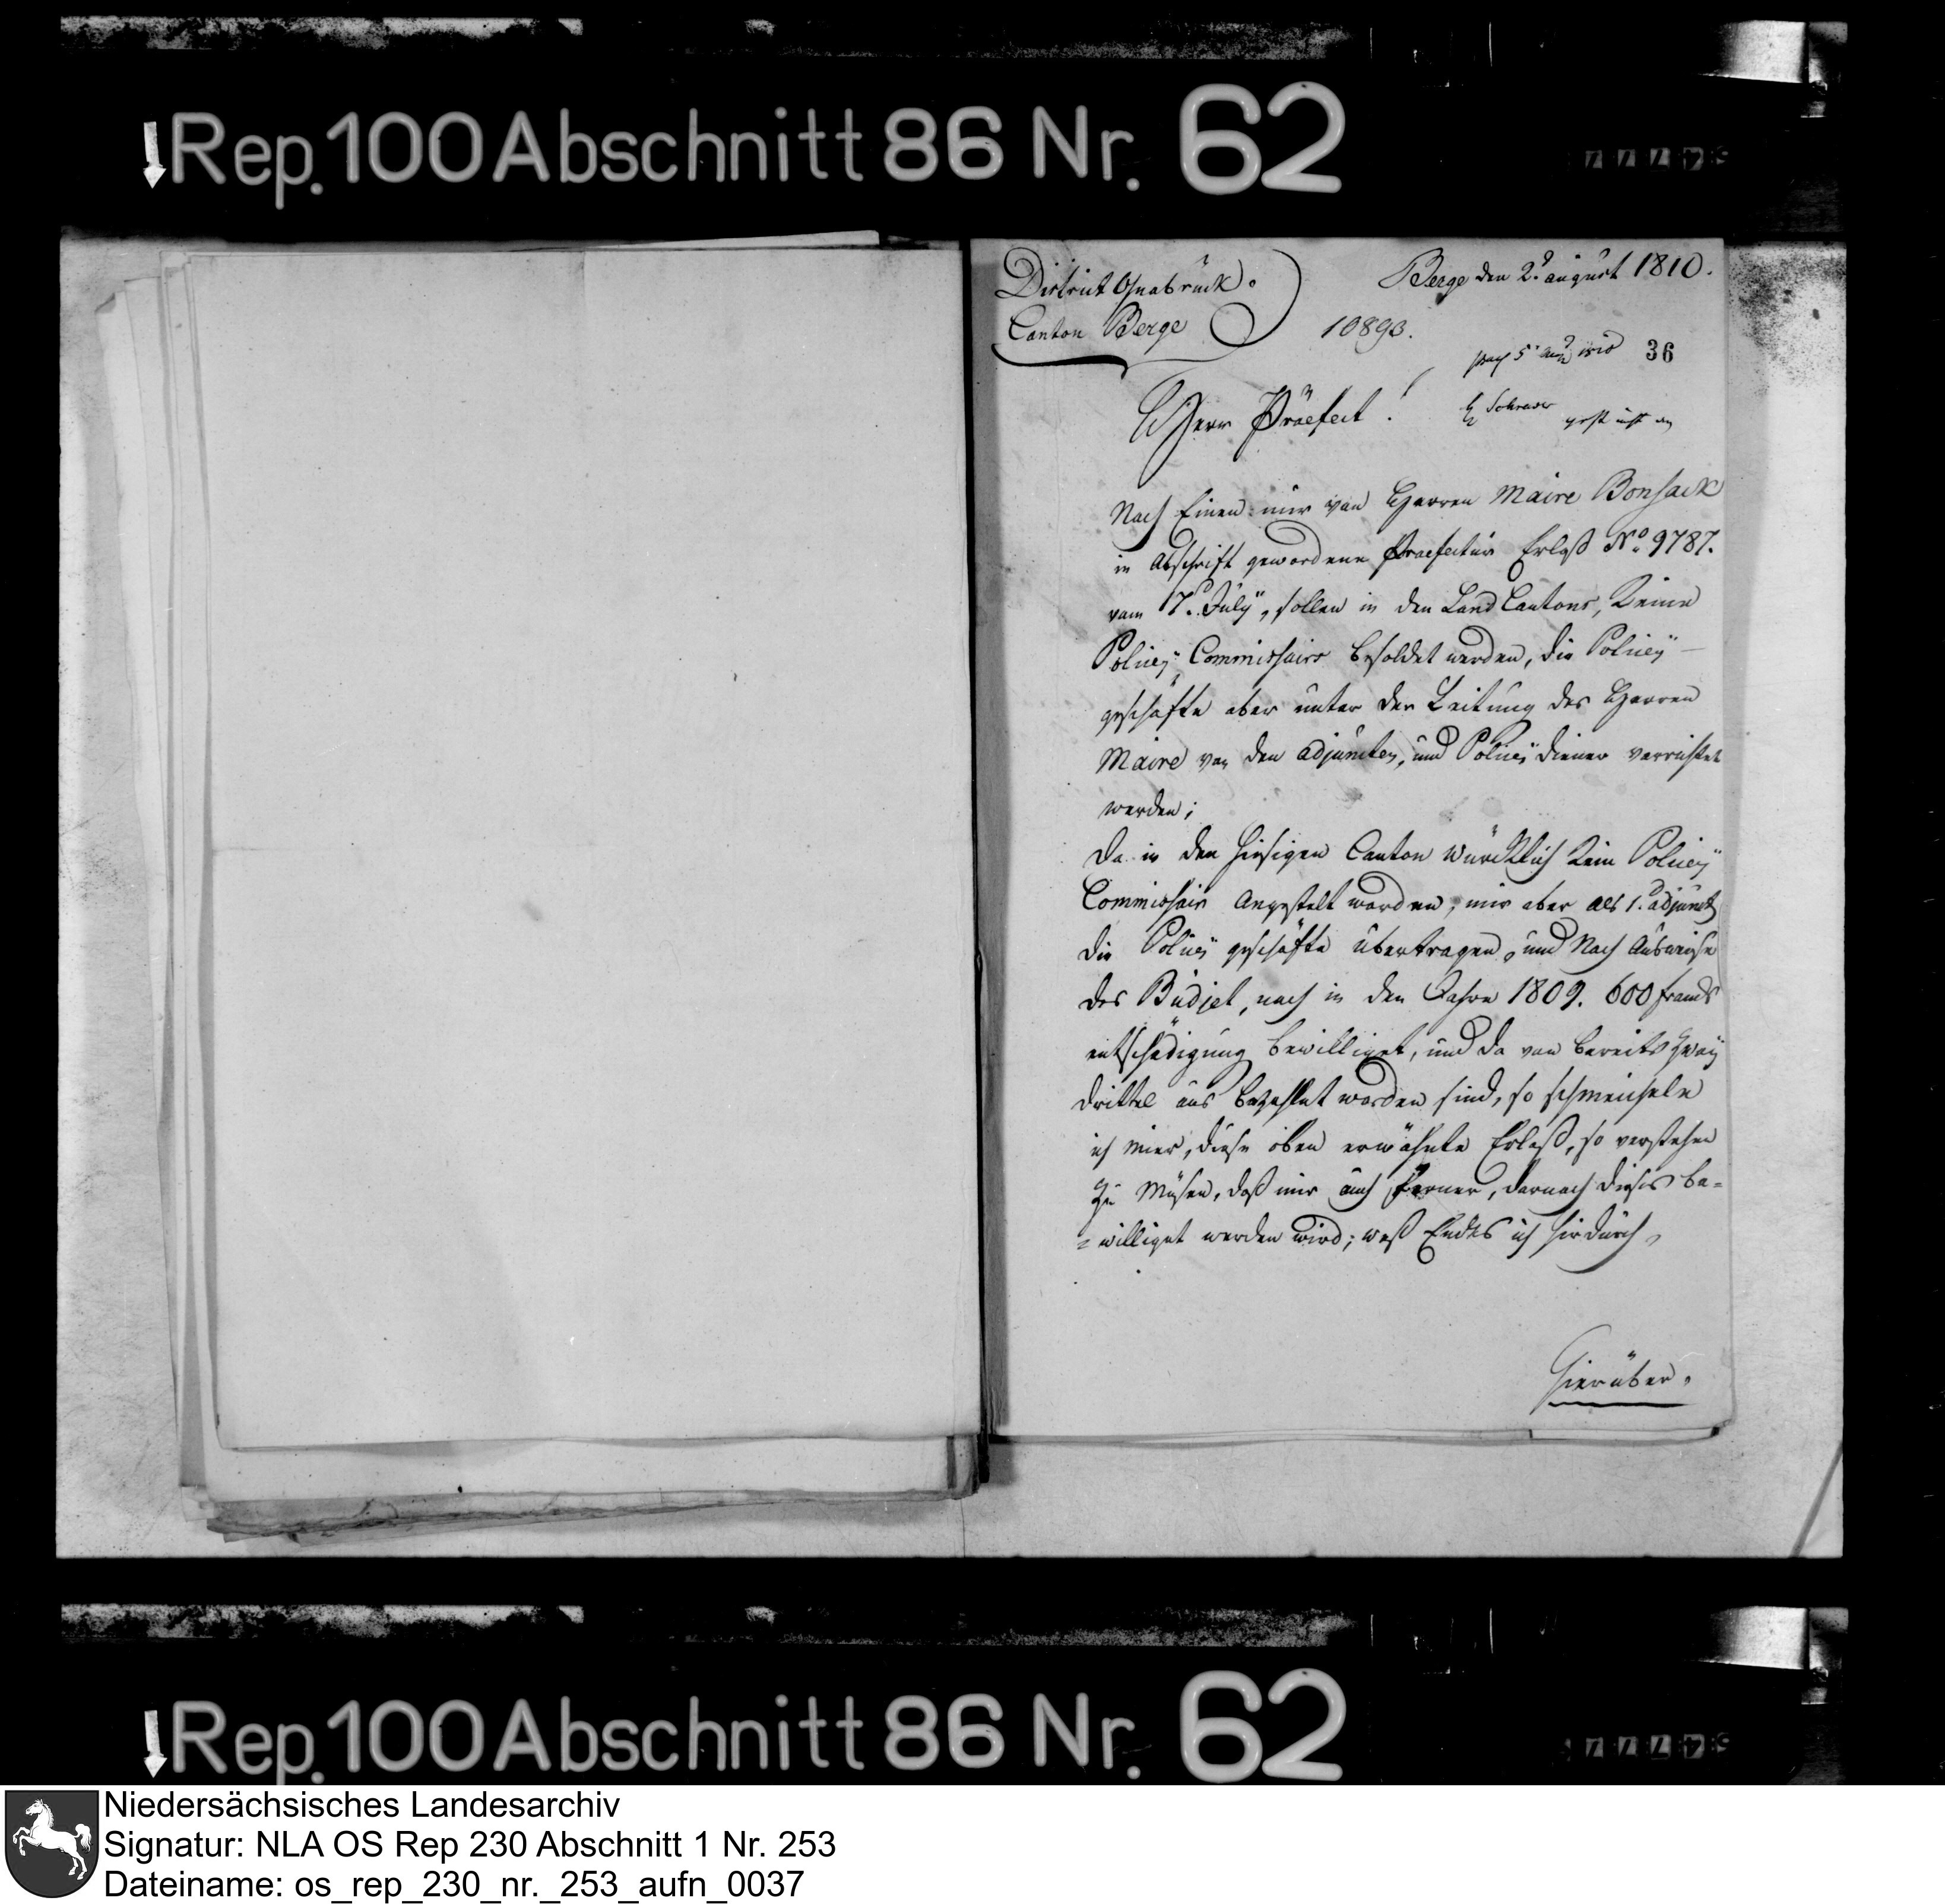 Rep. 100 Abschnitt 86 Nr. 62
District Osnabrück.
Canton Berge
Berge den 2t. august 1810.
10893.
36
Herr Präefect!
Nach Einen mir von Herren Maire Bonsack
in Abschrift gewordene Praefectür Erlaß No. 9787.
vom 17t. Julÿ, sollen in den Land Cantons, Keine
Policeÿ Commissairs besoldet werden, die Policeÿ-
geschäfte aber unter der Leitung des Herren
Maire von den adjuncten, und Policeÿ diener verrichtet
werden;
Da in den hiesigen Canton würcklich Kein Policeÿ
Commissair Angestelt worden, mir aber als 1t. adjunct
die Policeÿ geschäfte übertragen, und Nach Ausweise
des Büdjet, noch in den Jahre 1809. 600 francs
entschädigung bewilliget, und da von bereits zweÿ
drittel aus bezahlet worden sind, so schmeichele
ich mier, diese oben erwähnte Erlaß, so verstehen
zu Müsen, daß mir auch ferner, darnach dieses be=
=williget werden wird; weß Endes ich hirdurch,
hierüber.
Rep. 100 Abschnitt 86 Nr. 62
Niedersächsisches Landesarchiv
Signatur: NLA OS Rep 230 Abschnitt 1 Nr. 253
Dateiname: os_rep_230_nr._253_aufn_0037